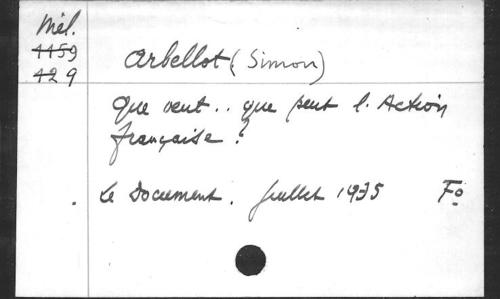 Mél.
1159
429
Arbellot (Simon)
Que veut.. que peut l'Action
française?
Le Document. Juillet 1935 Fo